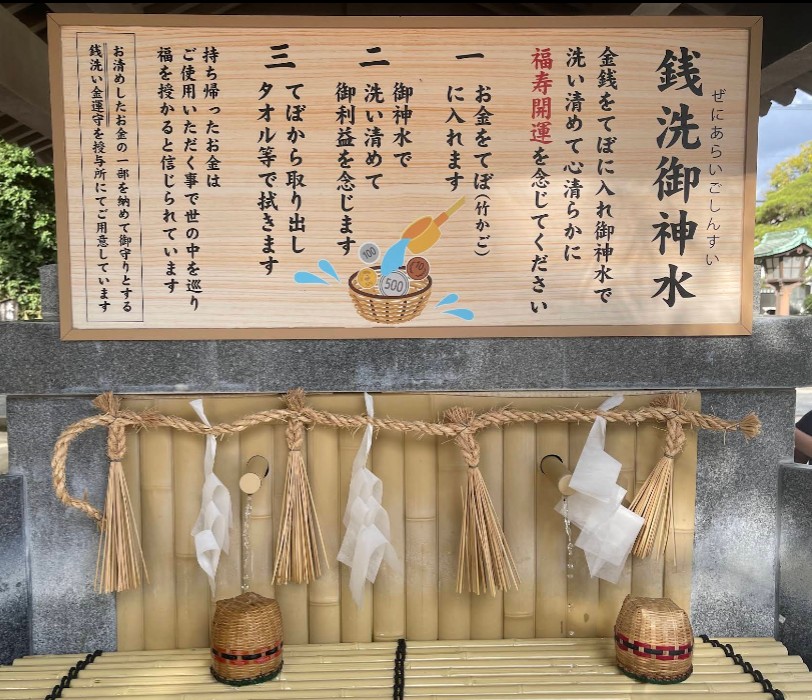 銭洗御神水
ぜにあらいごしんすい
金銭をてぼに入れ御神水で
洗い清めて心清らかに
福寿開運を念じてください
一
お金をてぼ(竹かご)
に入れます
二
御神水で
洗い清めて
御利益を念じます
三
てぼから取り出し
タオル等で拭きます
持ち帰ったお金は
ご使用いただく事で世の中を巡り
福を授かると信じられています
お清めしたお金の一部を納めて御守りとする
銭洗い金運守を授与所にてご用意しています
100
500
10